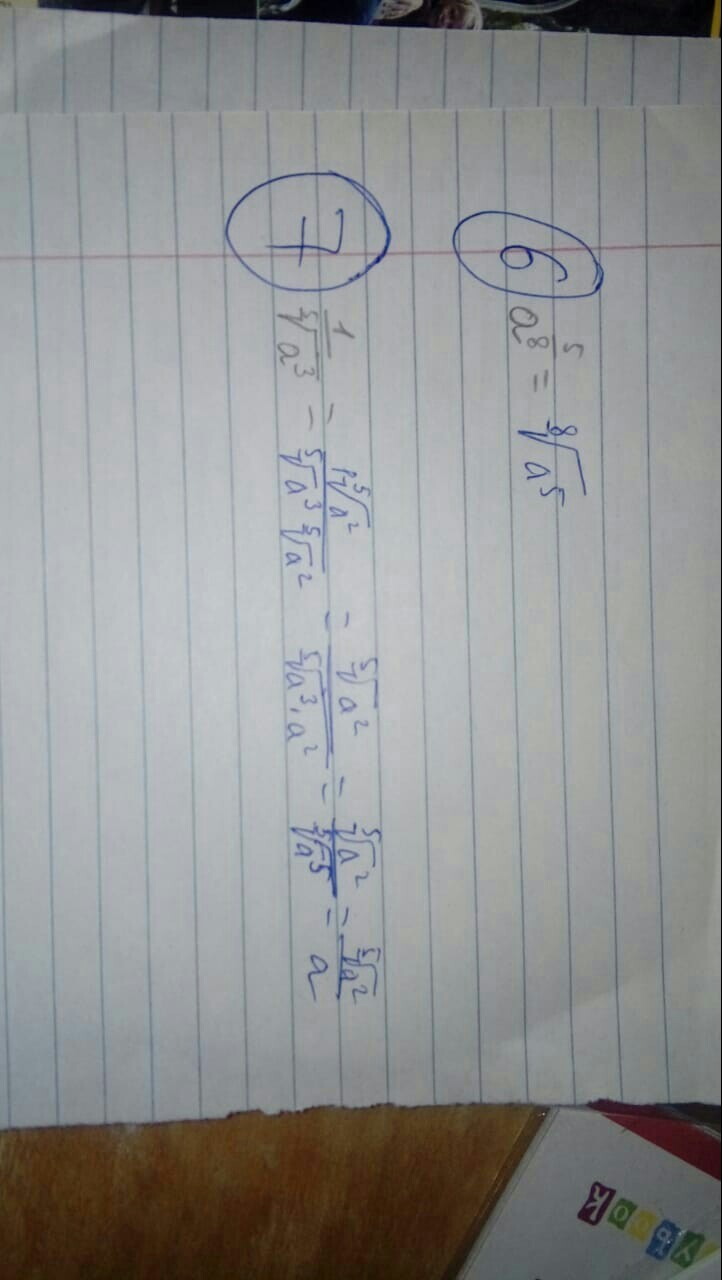 6 a^(5/8) = ⁸√a⁵
7 1/⁵√a³ = 1·⁵√a²/⁵√a³ ⁵√a² = ⁵√a²/⁵√a³·a² = ⁵√a²/⁵√a⁵ = ⁵√a²/a